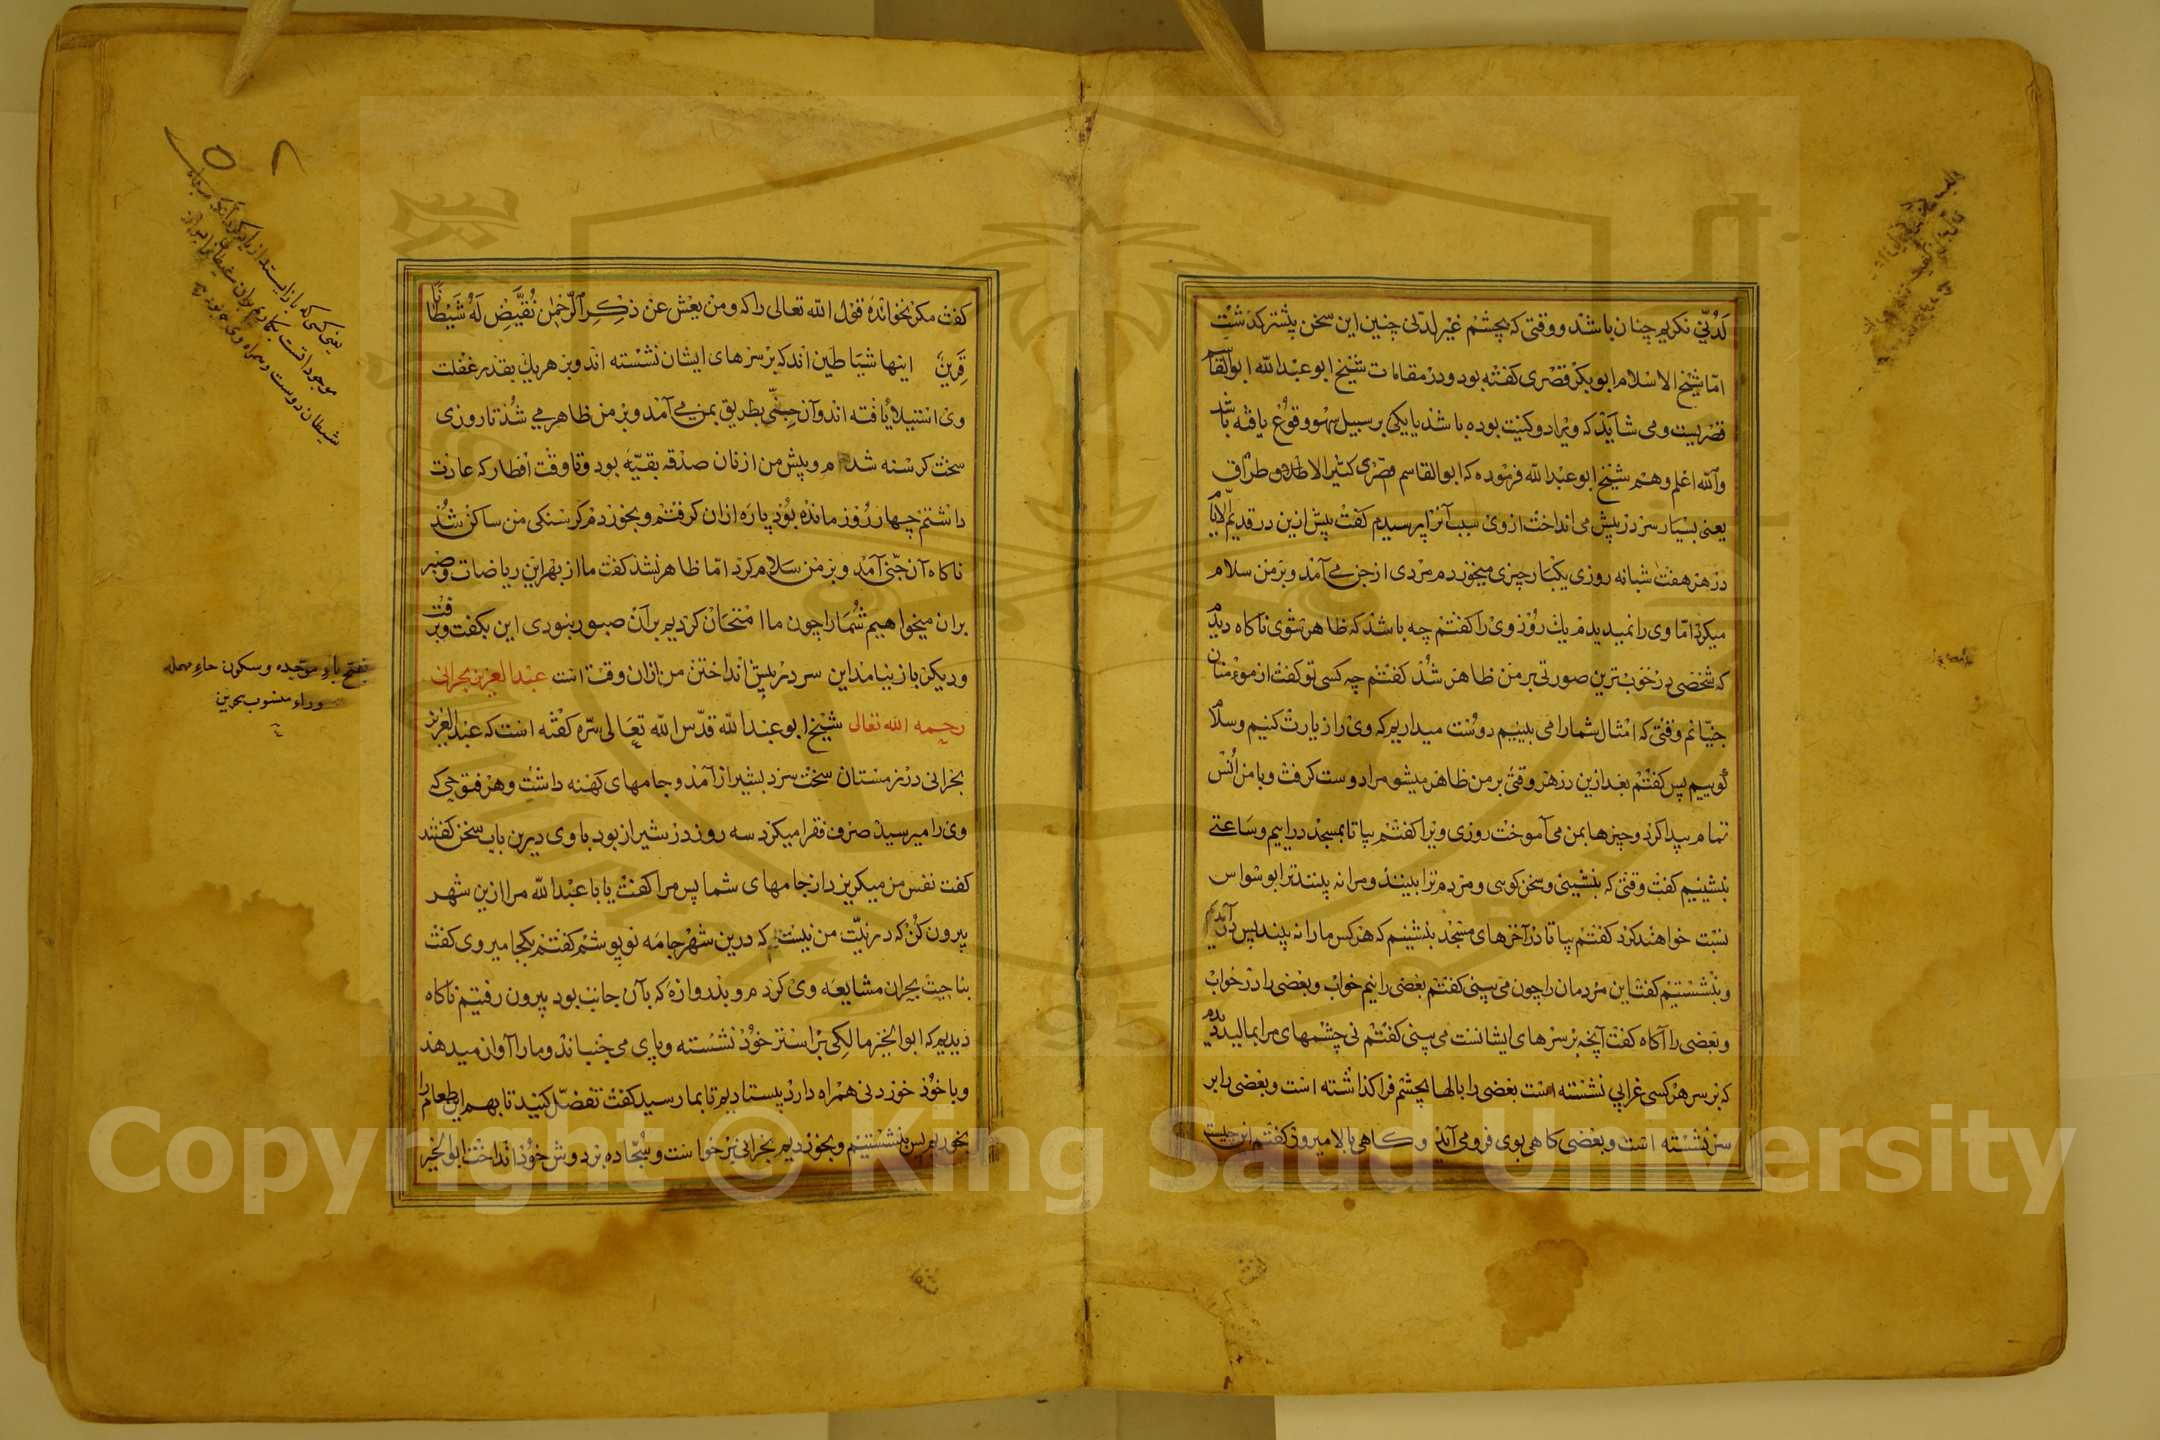 لدنی نکریم چنان باشد و وقتی که بچشم غیر لدنی چنین این سخن پیشتر گذشت
امّا شیخ الاسلام ابو بکر قصری گفته بود و در مقامات شیخ ابو عبد الله ابو القاسم
قصریست و می شاید که ویرا دو کنیت بوده باشد یا یکی بر سبیل سهو وقوع یافته باشد
والله اعلم و هم شیخ ابو عبد الله فرموده که ابو القاسم قصری کثیر الاطراق
یعنی بسیار سر در پیش می انداخت از وی سبب آنرا پرسیدم گفت پیش ازین در قدیم الایام
در هر هفت شبانه روزی یکبار چیزی میخوردم مردی از جن می آمد و بر من سلام
میکرد امّا وی را نمیدیدم یك روز وی را گفتم چه باشد که ظاهر شوی ناکاه دیدم
که شخصی در خوب ترین صورتی بر من ظاهر شد گفتم چه کسی تو گفت از مومنان
جنیانم وقتی که امثال شما را می بینیم دوست میداریم که وی را زیارت کنیم و سلام
گوییم پس گفتم بعد ازین در هر وقتی بر من ظاهر میشو مرا دوست گرفت و با من انس
تمام پیدا کرد و چیزها بمن می آموخت روزی ویرا گفتم بیا تا بمسجد در ایم و ساعتی
بنشینیم گفت وقتی که بنشینی و سخن کویی و مردم ترا بینند و مرا نه بینند ترا بوسواس
نسبت خواهند کرد گفتم بیا تا در آخرهای مسجد بنشینم که هر کس ما را نه بیند پس در آمدیم
و بنشستیم گفت این مردمان را چون می بینی گفتم بعضی را نیم خواب و بعضی را در خواب
و بعضی را آکاه گفت آنچه بر سرهای ایشانست می بینی گفتم نی چشمهای مرا بمالید دیدم
که بر سر هر کسی غرابی نشسته است بعضی را بالها بچشم فرا گذاشته است و بعضی را بر
سر نشسته است و بعضی کاهی بوی فرو می آید و کاهی بالا میرود گفتم این چیست
گفت مکر نخوانده قول الله تعالی را که ومن یعش عن ذکر الرحمن نقیض له شیطانا
قرین اینها شیاطین اند که بر سرهای ایشان نشسته اند و بر هر یك بقدر غفلت
وی استیلا یافته اند و آن جنّی بطریق بمن می آمد و بر من ظاهر می شد تا روزی
سخت گرسنه شدم و پیش من از نان صدقه بقیّه بود و تا وقت افطار که عادت
داشتم چهار روز مانده بود پاره ازان گرفتم و بخوردم گرسنکی من ساکن شد
ناکاه آن جنّی آمد و بر من سلام کرد امّا ظاهر نشد گفت ما از بهر این ریاضات و صبر
بران میخواهیم شما را چون ما امتحان کردیم بر آن صبور نبودی این بگفت و برفت
و دیکر باز نیامد این سر در پیش انداختن من ازان وقت است عبد العزیز بحرانی
رحمه الله تعالی شیخ ابو عبد الله قدّس الله تعالی سّره گفته است که عبد العزیز
بحرانی در زمستان سخت سرد بشیراز آمد و جامهای کهنه داشت و هر فتوحی که
وی را میرسید صرف فقرا میکرد سه روز در شیراز بود با وی درین باب سخن گفتند
گفت نفس من میکریزد از جامهای شما پس مرا گفت یا با عبد الله مرا ازین شهر
بیرون کن که در نیّت من نیست که درین شهر جامه نو پوشم گفتم بکجا میروی گفت
بناحیت بحران مشایعه وی کردم و بدروازه که بآن جانب بود بیرون رفتیم ناکاه
دیدیم که ابو الخیر مالکی بر استر خود نشسته و پای می جنباند و ما را آواز میدهد
و با خود خوردنی همراه دارد بیستادیم تا بما رسید گفت تفضّل کنید تا بهم این طعام را
بخوریم پس بنشستیم و بخوردیم بحرانی بر خواست و سجّاده بر دوش خود انداخت ابو الخیر
یعنی کسی که باز ایستد از یاد کردن
شیطان دوست و همراه وی بود
بفتح باء موحّده وسکون حاء مهمله
وراء منسوب ببحرین
Copyright © King Saud University